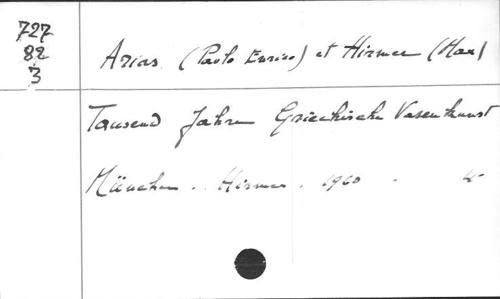 727
82
3
Arias (Paolo Enrico) et Hirmer (Max)
Tausend Jahre Griechische Vasenkunst
München . Hirmer . 1960 . 4°